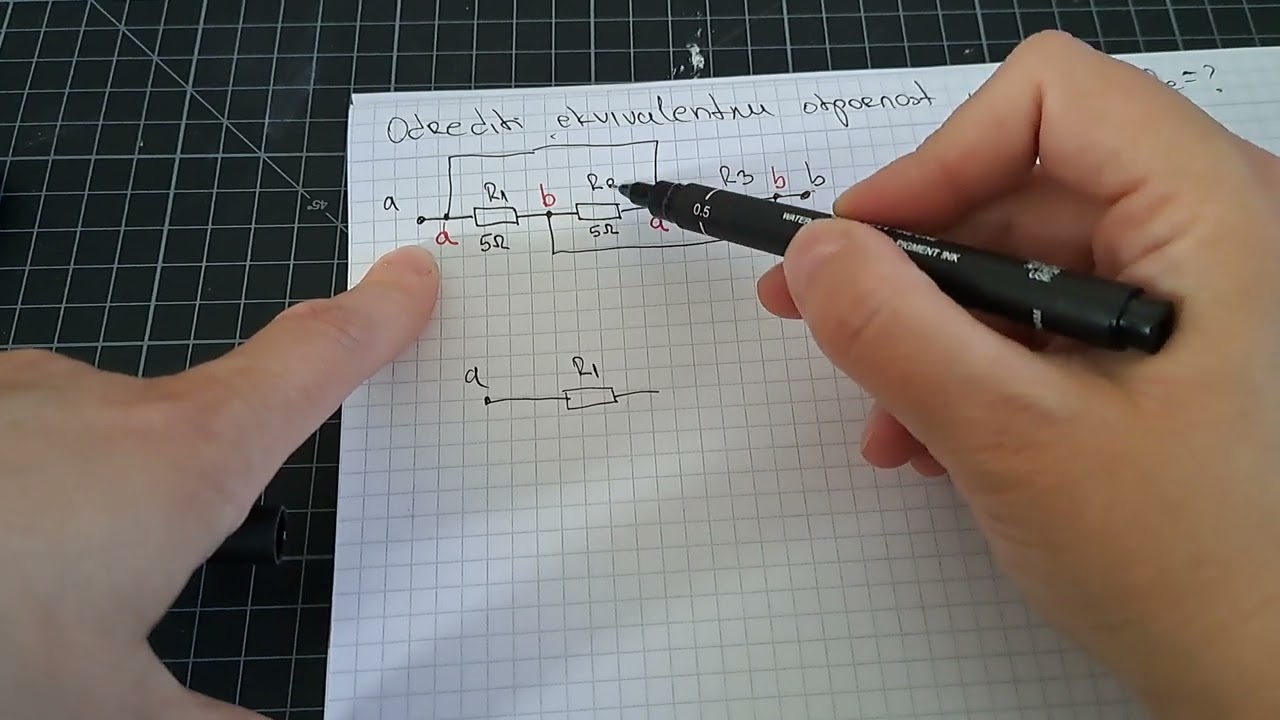 Odrediti ekvivalentnu otpornost Re=?
a R1 b R2 R3 b b
a 5Ω 5Ω a
a R1
0.5
PIGMENT INK
45°